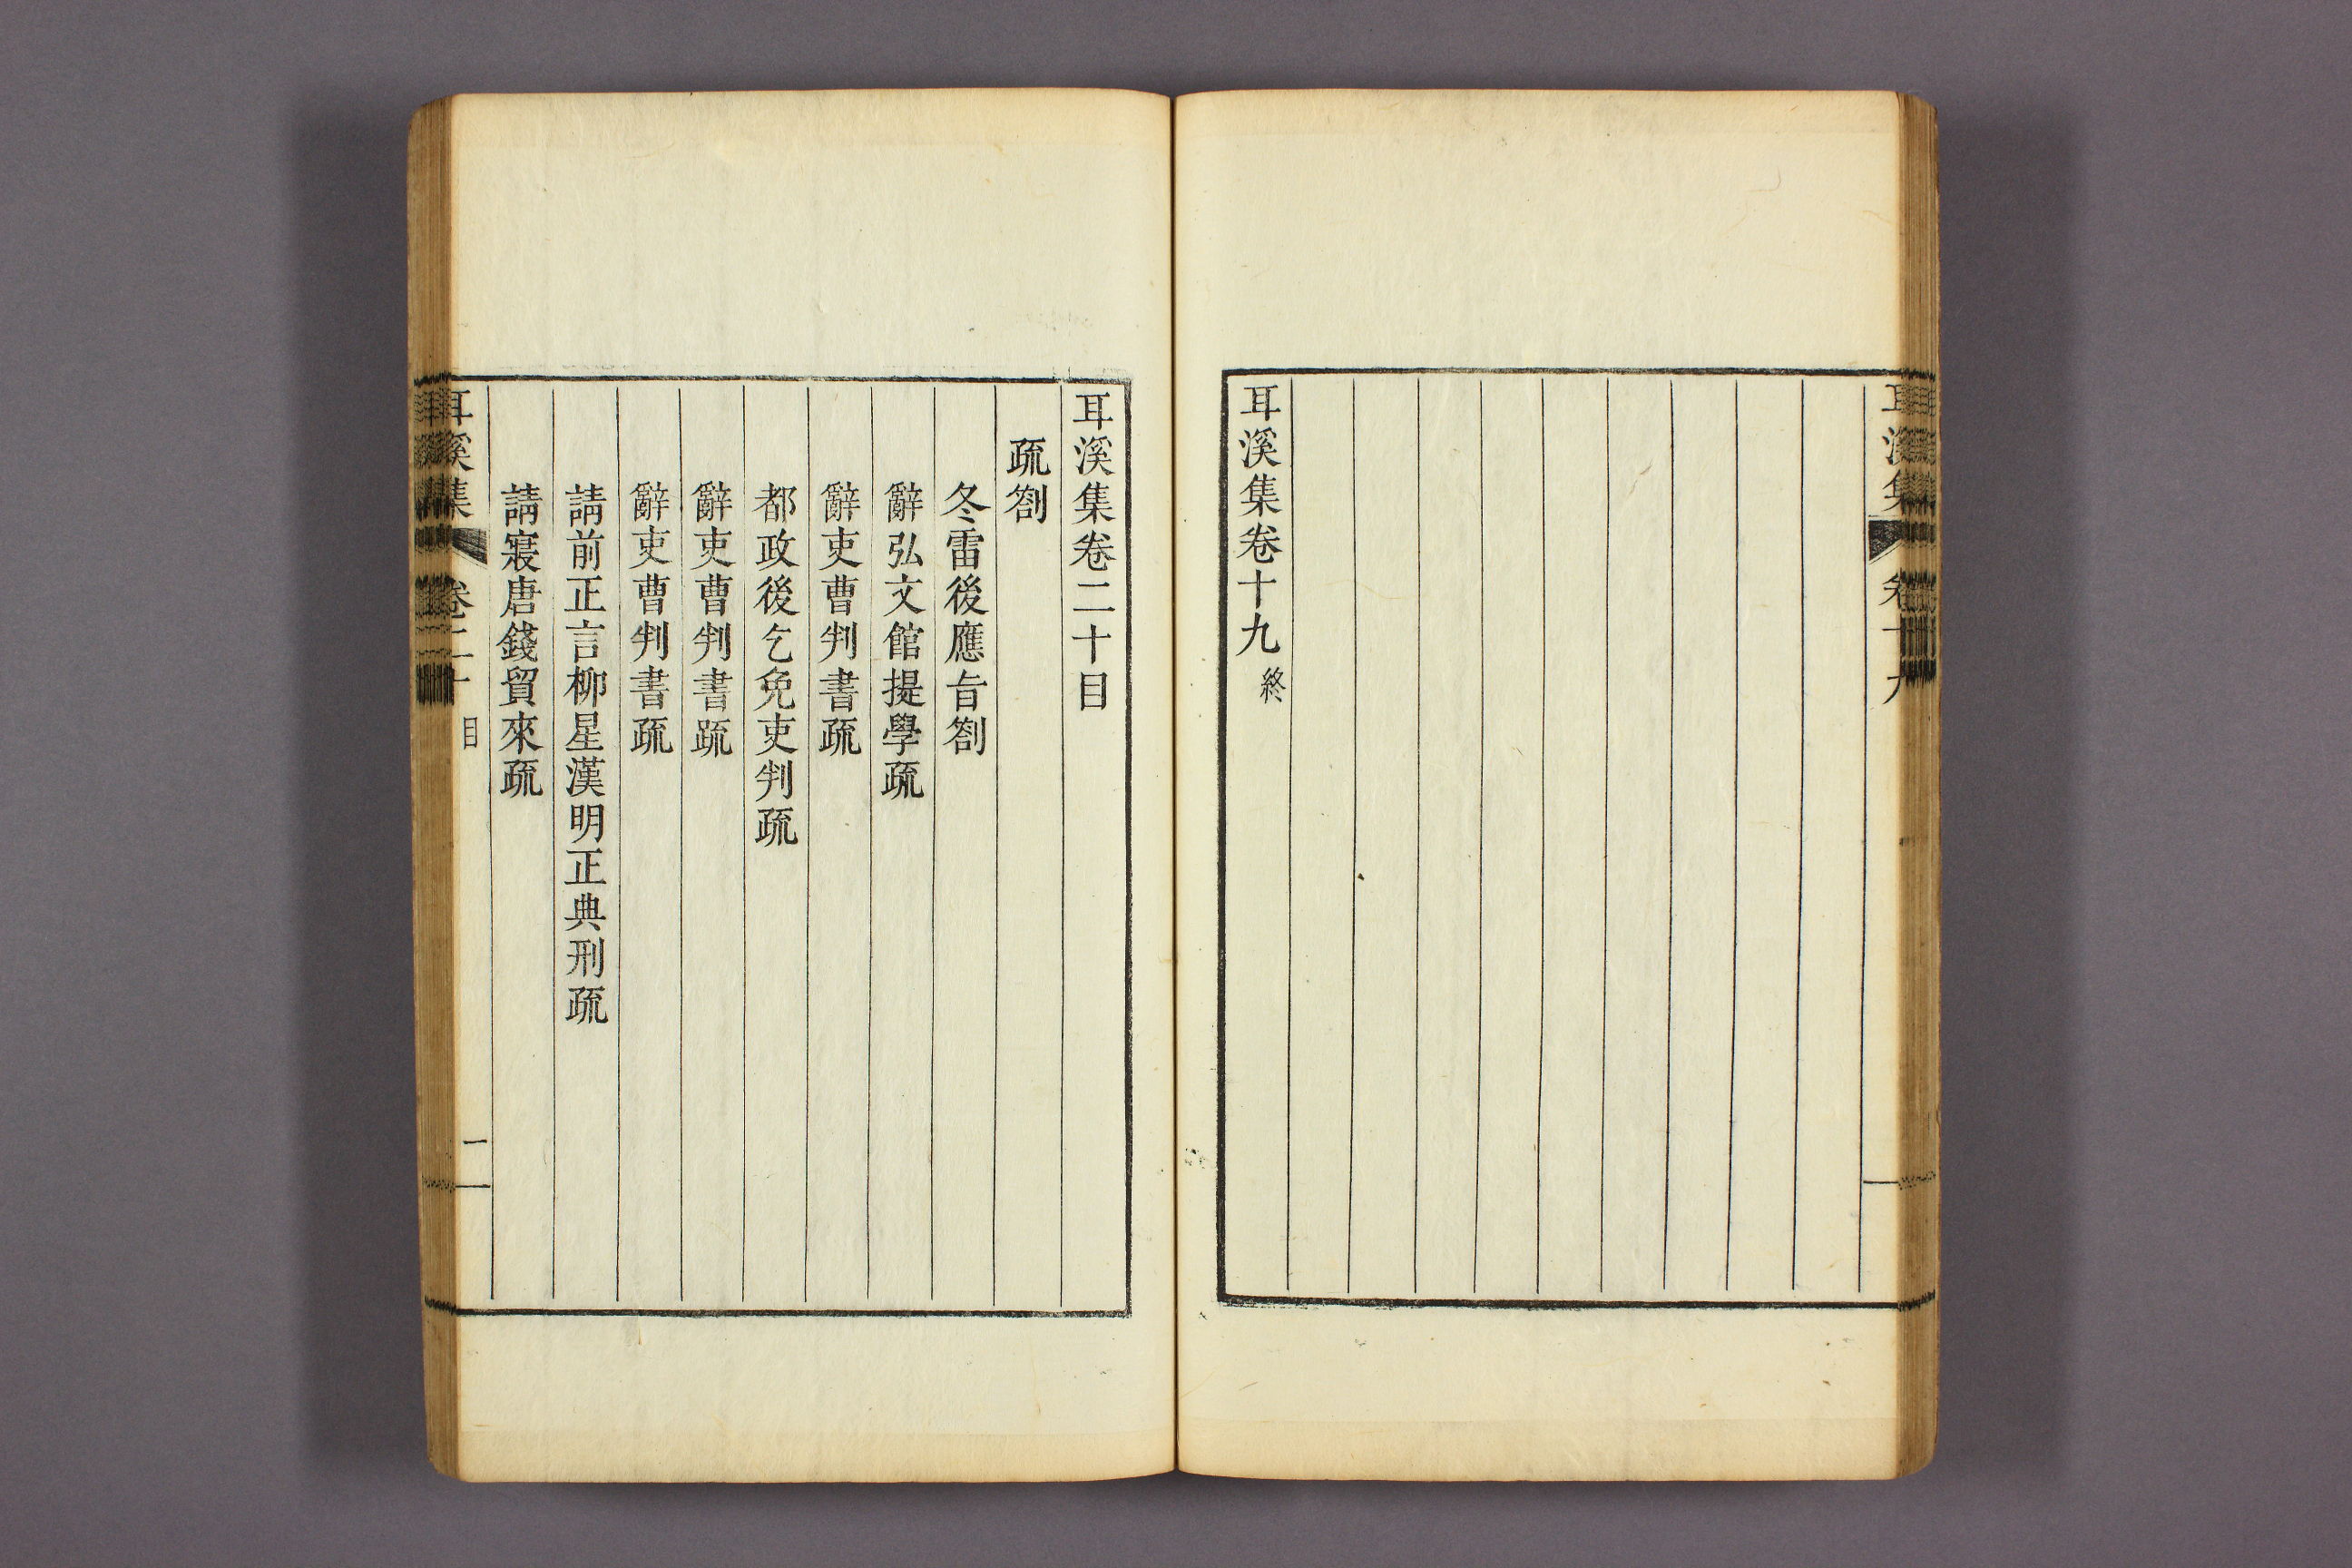 耳溪集 卷十九
耳溪集卷十九 終
耳溪集卷二十目
疏劄
冬雷後應旨劄
辭弘文館提學疏
辭吏曹判書疏
都政後乞免吏判疏
辭吏曹判書疏
辭吏曹判書疏
請前正言柳星漢明正典刑疏
請寢唐錢貿來疏
耳溪集 卷二十 目 一